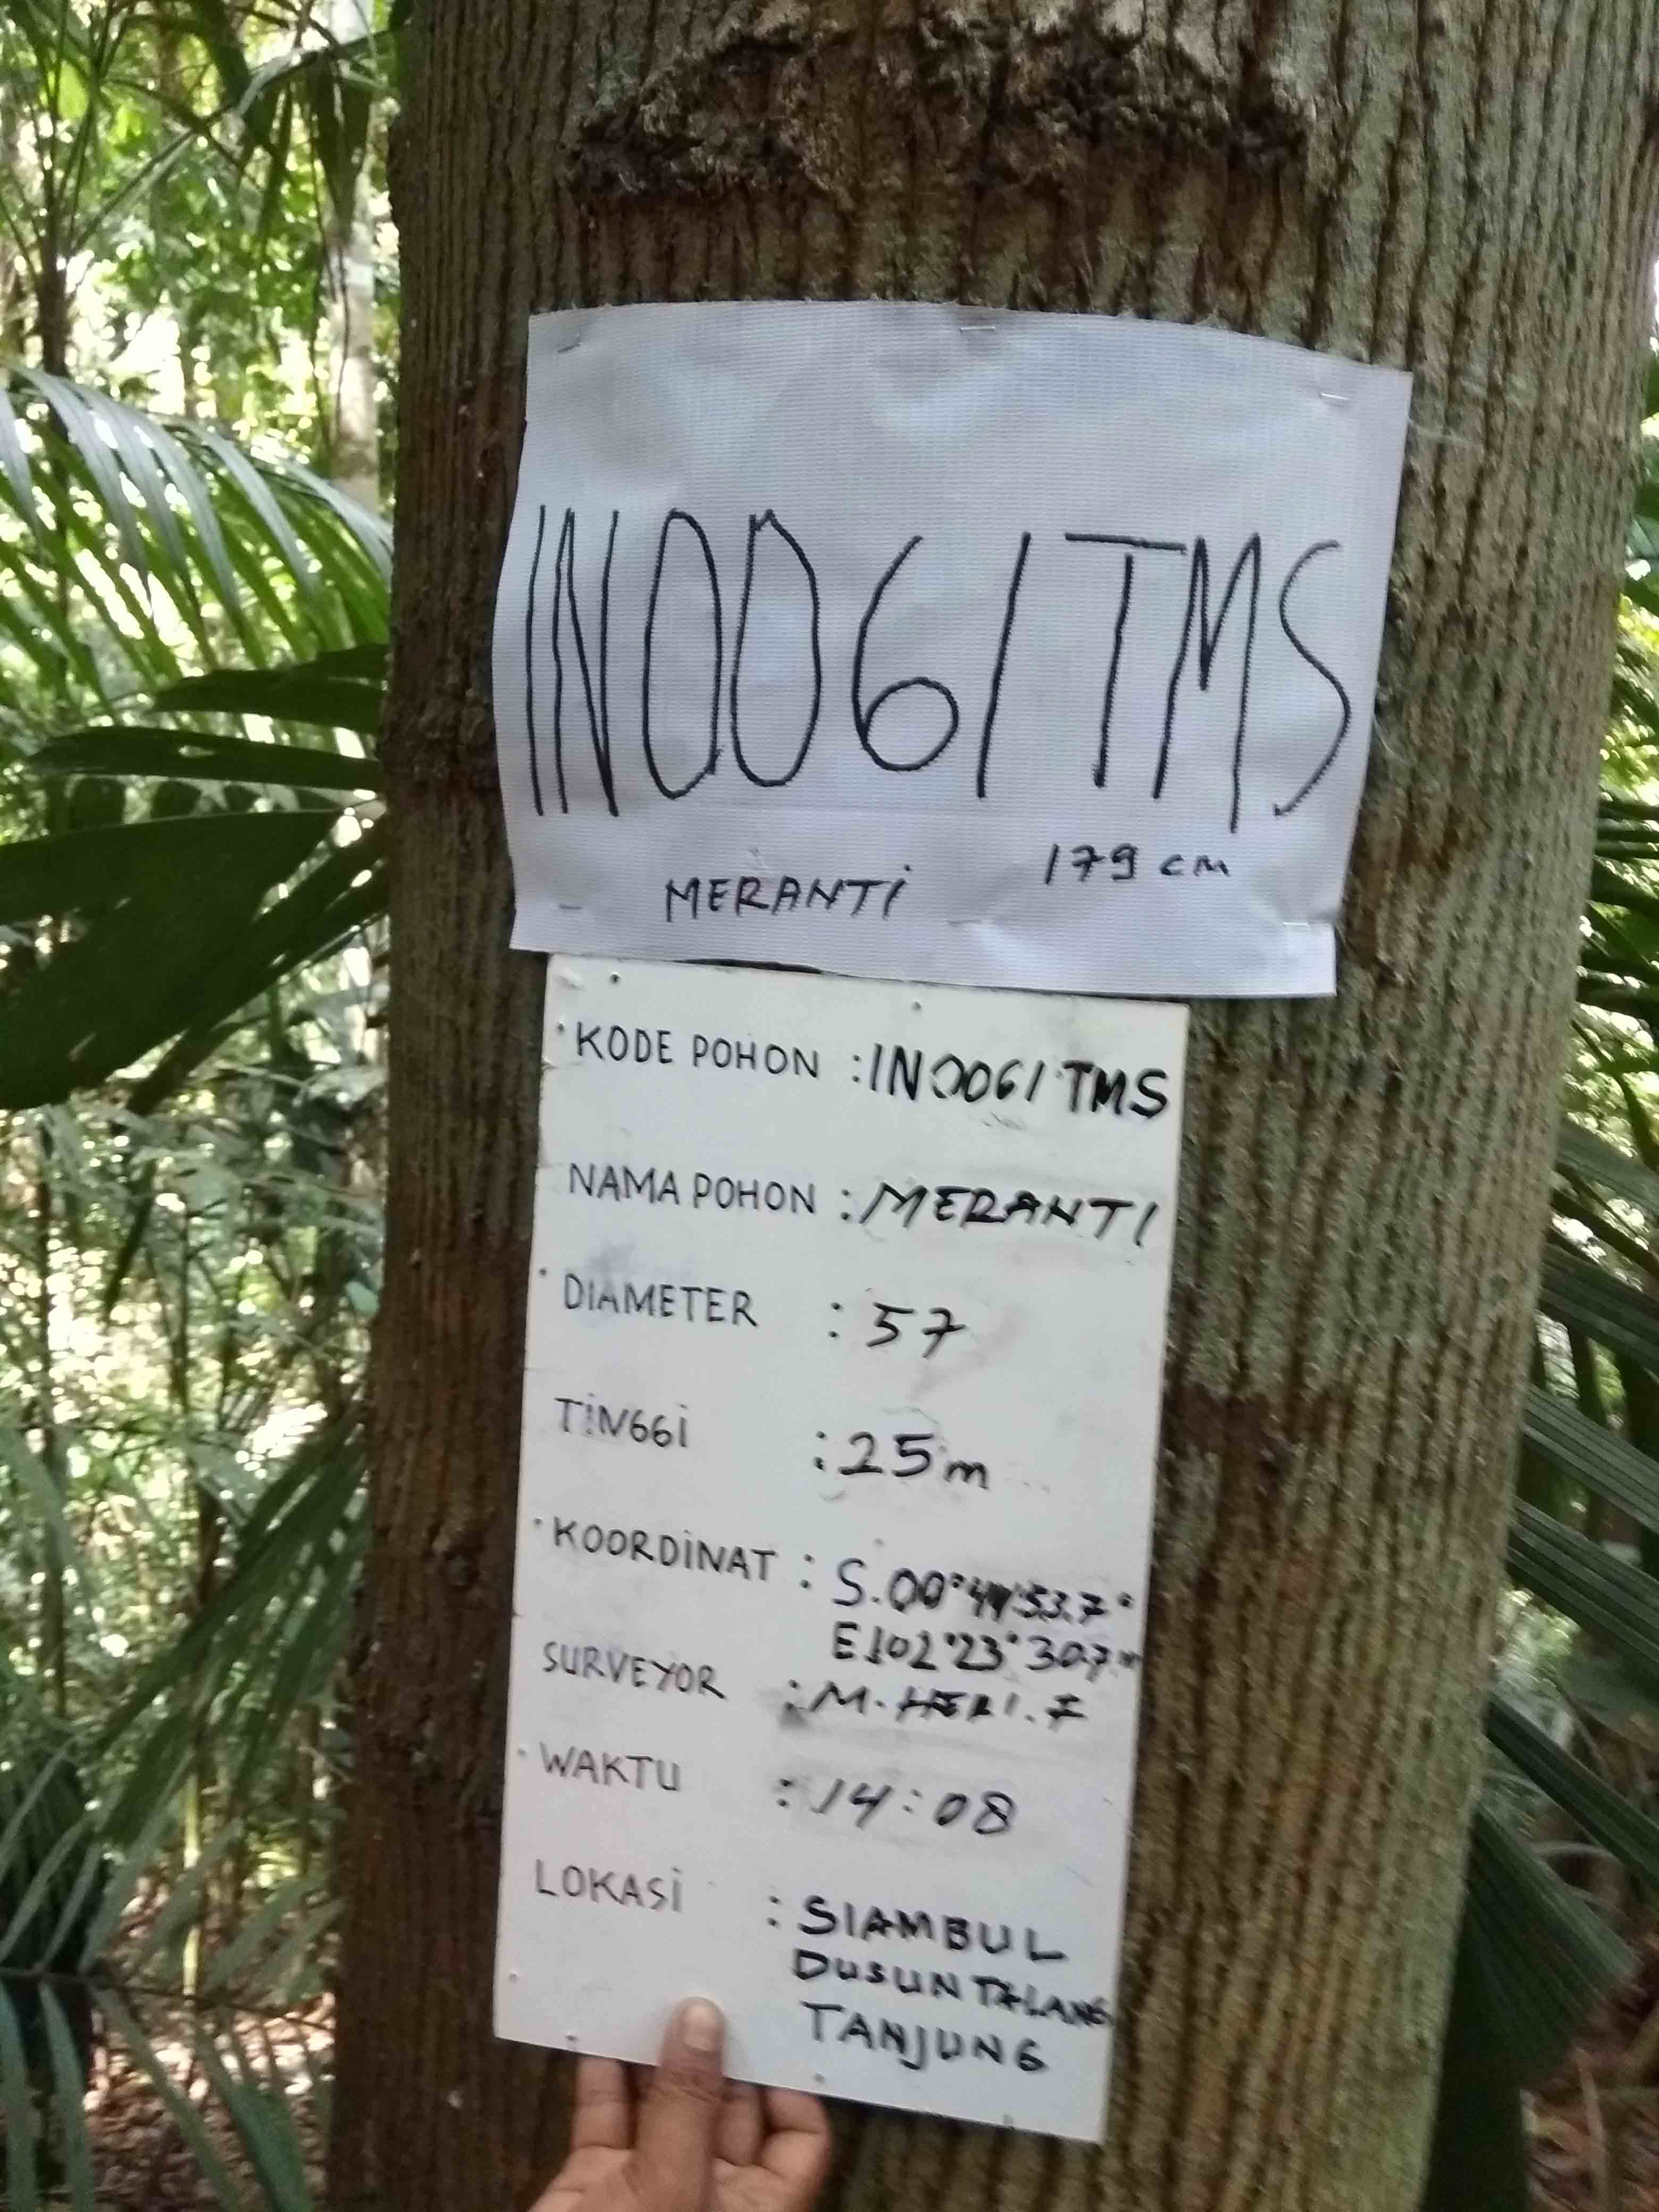 IN0061TMS
MERANTi 179 cm
KODE POHON : IN0061 TMS
NAMA POHON : MERANTI
DIAMETER : 57
TiNGGi : 25 m
KOORDiNAT : S.00°
E102°23°30.7"
SURVEYOR : M. HERI. F
WAKTU : 14:08
LOKASi : SIAMBUL
DUSUN TALANG
TANJUNG